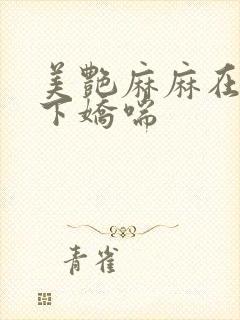 美艷麻麻在
下嬌喘
青雀